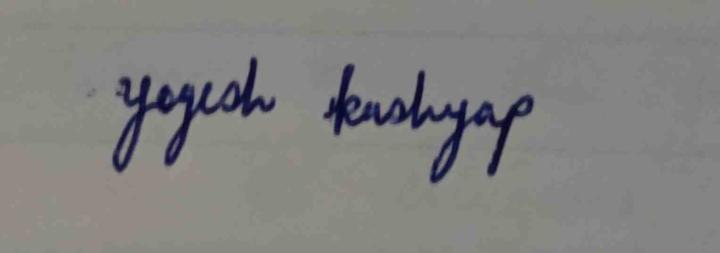 yogesh kashyap